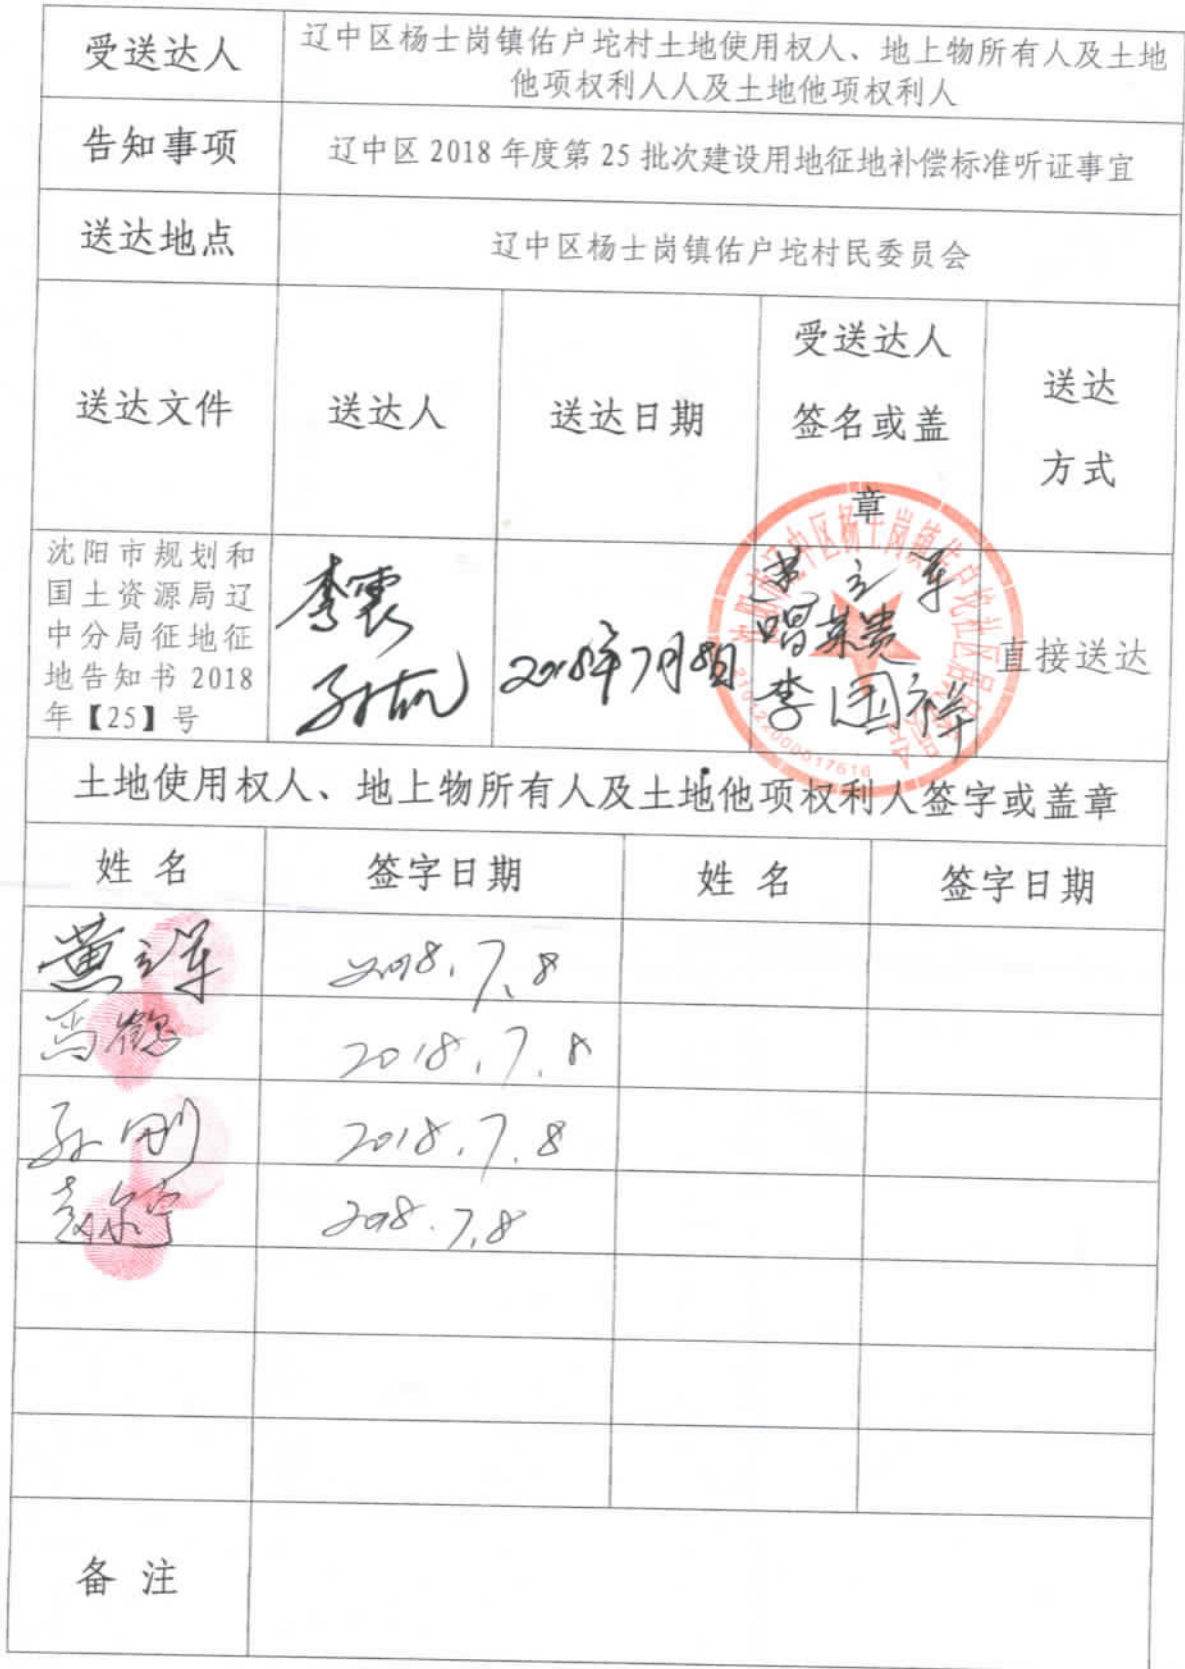 受送达人
辽中区杨士岗镇佑户坨村土地使用权人、地上物所有人及土地
他项权利人人及土地他项权利人
告知事项
辽中区 2018 年度第 25 批次建设用地征地补偿标准听证事宜
送达地点
辽中区杨士岗镇佑户坨村民委员会
送达文件
送达人
送达日期
受送达人
签名或盖
章
送达
方式
沈阳市规划和
国土资源局辽
中分局征地征
地告知书 2018
年【25】号
2018年7月8日
李国祥
直接送达
2101220000017616
土地使用权人、地上物所有人及土地他项权利人签字或盖章
姓 名
签字日期
姓 名
签字日期
2018.7.8
2018.7.8
孙刚
2018.7.8
2018.7.8
备 注